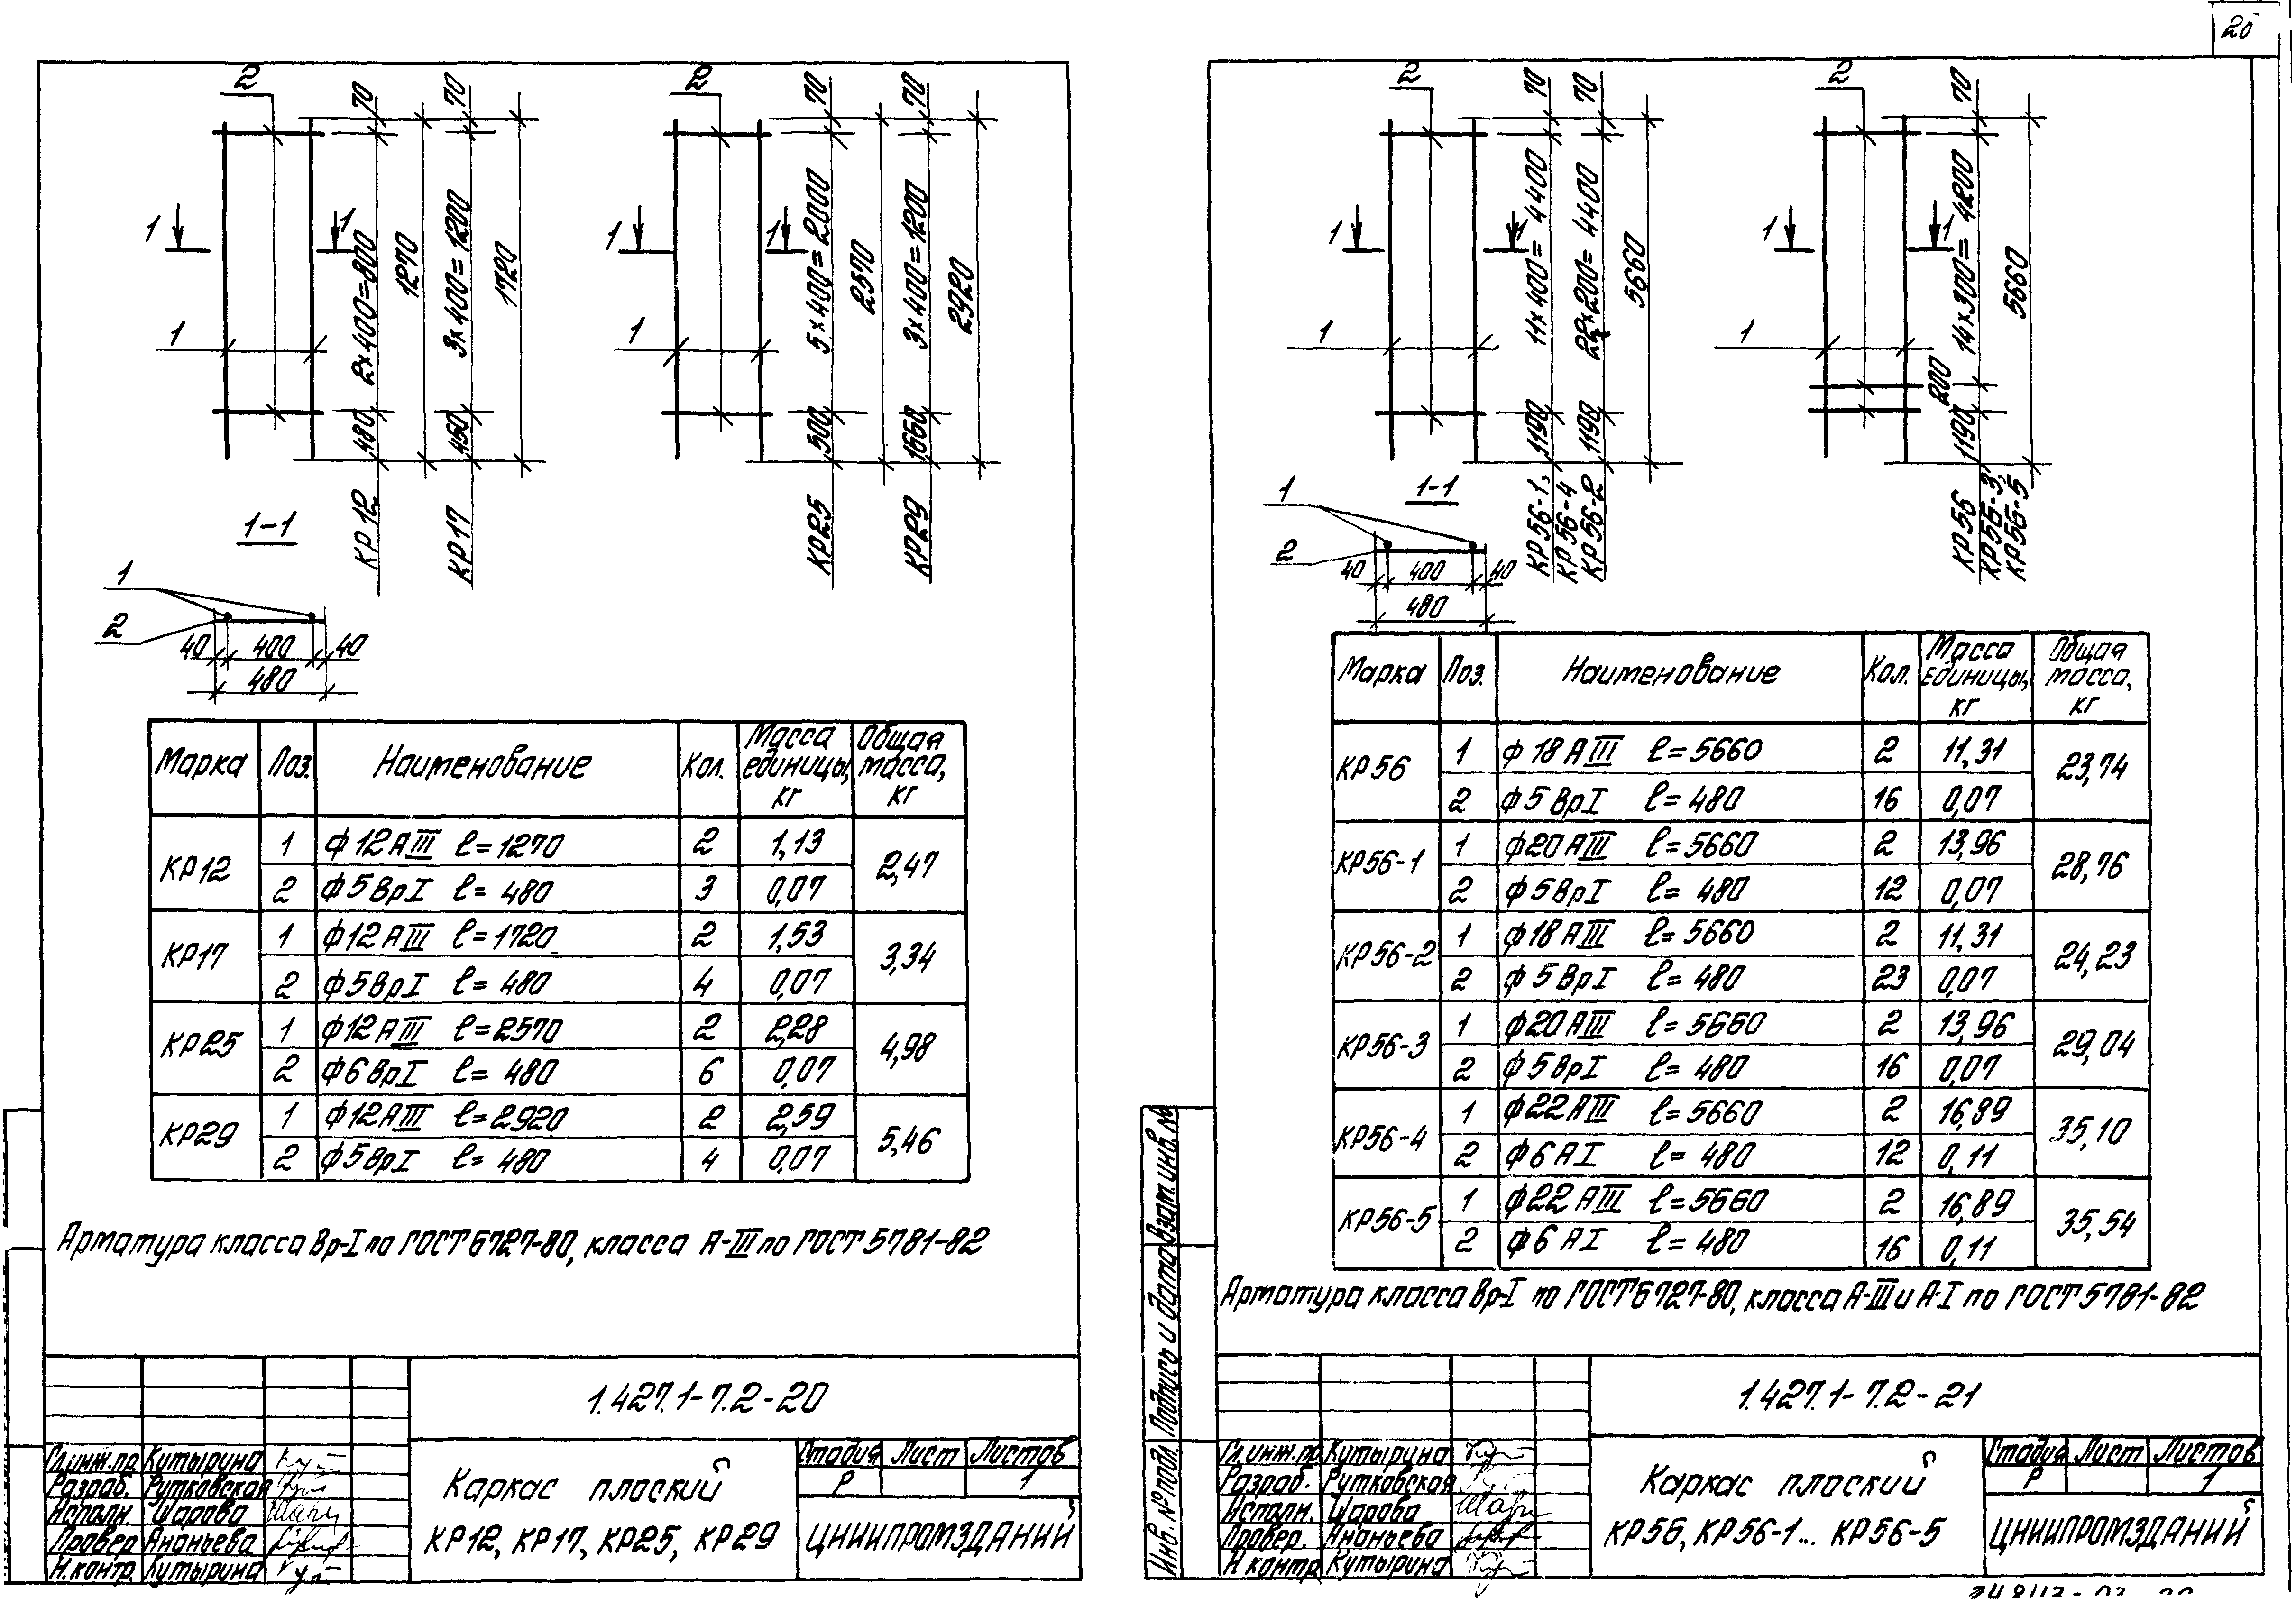 26
2
1
1
1
70
2×400=800
480
КР12
1270
70
3×400=1200
450
КР17
1720
2
1
1
1
70
5×400=2000
500
КР25
2570
70
3×400=1200
1660
КР29
2920
1-1
1
2
40 400 40
480
Марка Поз. Наименование Кол. Масса единицы, кг Общая масса, кг
КР12 1 ф12АIII ℓ=1270 2 1,13 2,47
2 ф5ВрI ℓ= 480 3 0,07
КР17 1 ф12АIII ℓ=1720 2 1,53 3,34
2 ф5ВрI ℓ= 480 4 0,07
КР25 1 ф12АIII ℓ=2570 2 2,28 4,98
2 ф6ВрI ℓ= 480 6 0,07
КР29 1 ф12АIII ℓ=2920 2 2,59 5,46
2 ф5ВрI ℓ= 480 4 0,07
Арматура класса Вр-I по ГОСТ 6727-80, класса А-III по ГОСТ 5781-82
1.427.1-7.2-20
Гл.инж.пр. Кутырина
Разраб. Рутковская
Исполн. Шарова
Провер. Ананьева
Н.контр. Кутырина
Каркас плоский
КР12, КР17, КР25, КР29
Стадия Лист Листов
Р 1
ЦНИИПРОМЗДАНИЙ
2
1
1
1
70
11×400=4400
1190
КР56-1,
КР56-4
70
22×200=4400
1190
КР56-2
5660
2
1
1
1
70
14×300=4200
200
1190
КР56
КР56-3,
КР56-5
5660
1-1
1
2
40 400 40
480
Марка Поз. Наименование Кол. Масса единицы, кг Общая масса, кг
КР56 1 ф18АIII ℓ=5660 2 11,31 23,74
2 ф5ВрI ℓ= 480 16 0,07
КР56-1 1 ф20АIII ℓ=5660 2 13,96 28,76
2 ф5ВрI ℓ= 480 12 0,07
КР56-2 1 ф18АIII ℓ=5660 2 11,31 24,23
2 ф5ВрI ℓ= 480 23 0,07
КР56-3 1 ф20АIII ℓ=5660 2 13,96 29,04
2 ф5ВрI ℓ= 480 16 0,07
КР56-4 1 ф22АIII ℓ=5660 2 16,89 35,10
2 ф6АI ℓ= 480 12 0,11
КР56-5 1 ф22АIII ℓ=5660 2 16,89 35,54
2 ф6АI ℓ= 480 16 0,11
Арматура класса Вр-I по ГОСТ 6727-80, класса А-III и А-I по ГОСТ 5781-82
Взам.инв.№
Подпись и дата
Инв.№ подл.
1.427.1-7.2-21
Гл.инж.пр. Кутырина
Разраб. Рутковская
Исполн. Шарова
Провер. Ананьева
Н.контр. Кутырина
Каркас плоский
КР56, КР56-1... КР56-5
Стадия Лист Листов
Р 1
ЦНИИПРОМЗДАНИЙ